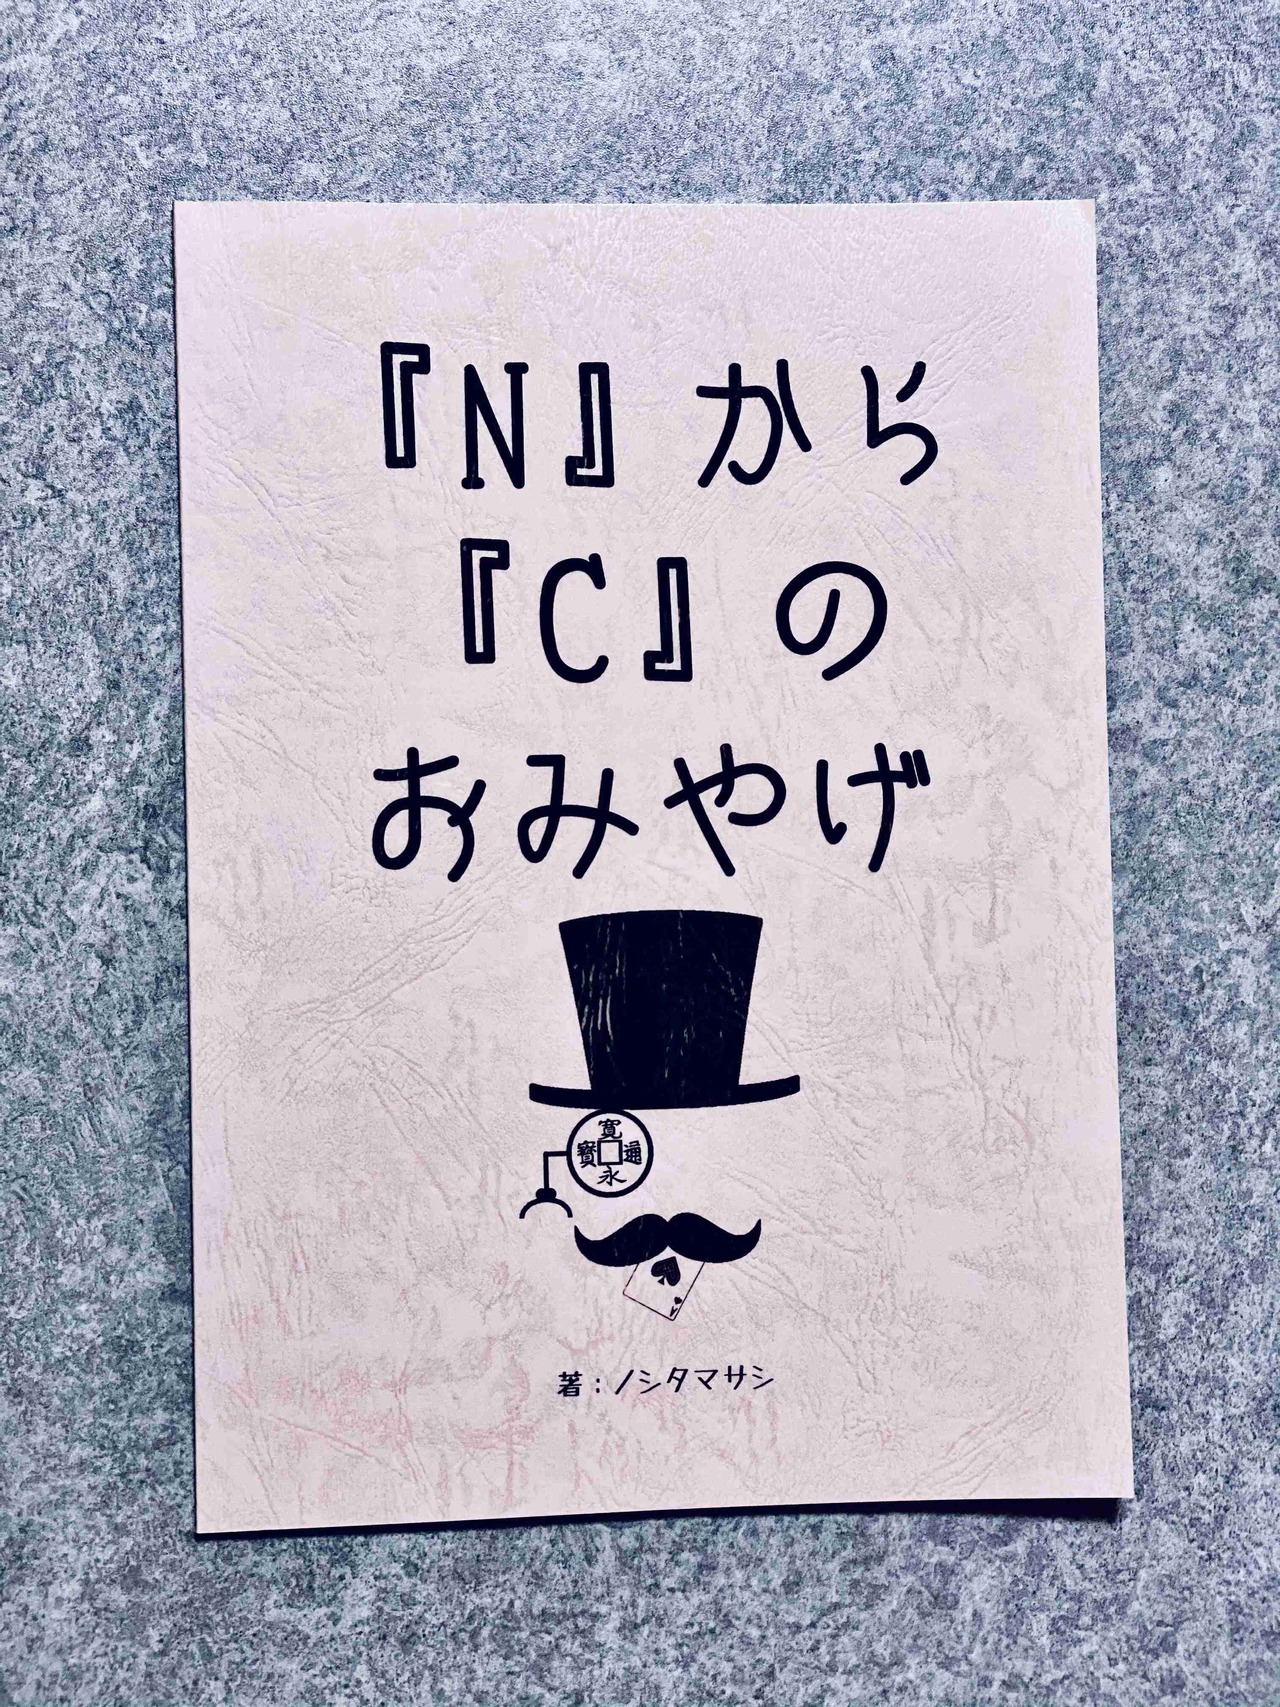 『N』から
『C』の
おみやげ
寛永通寳
A
著：ノシタマサシ